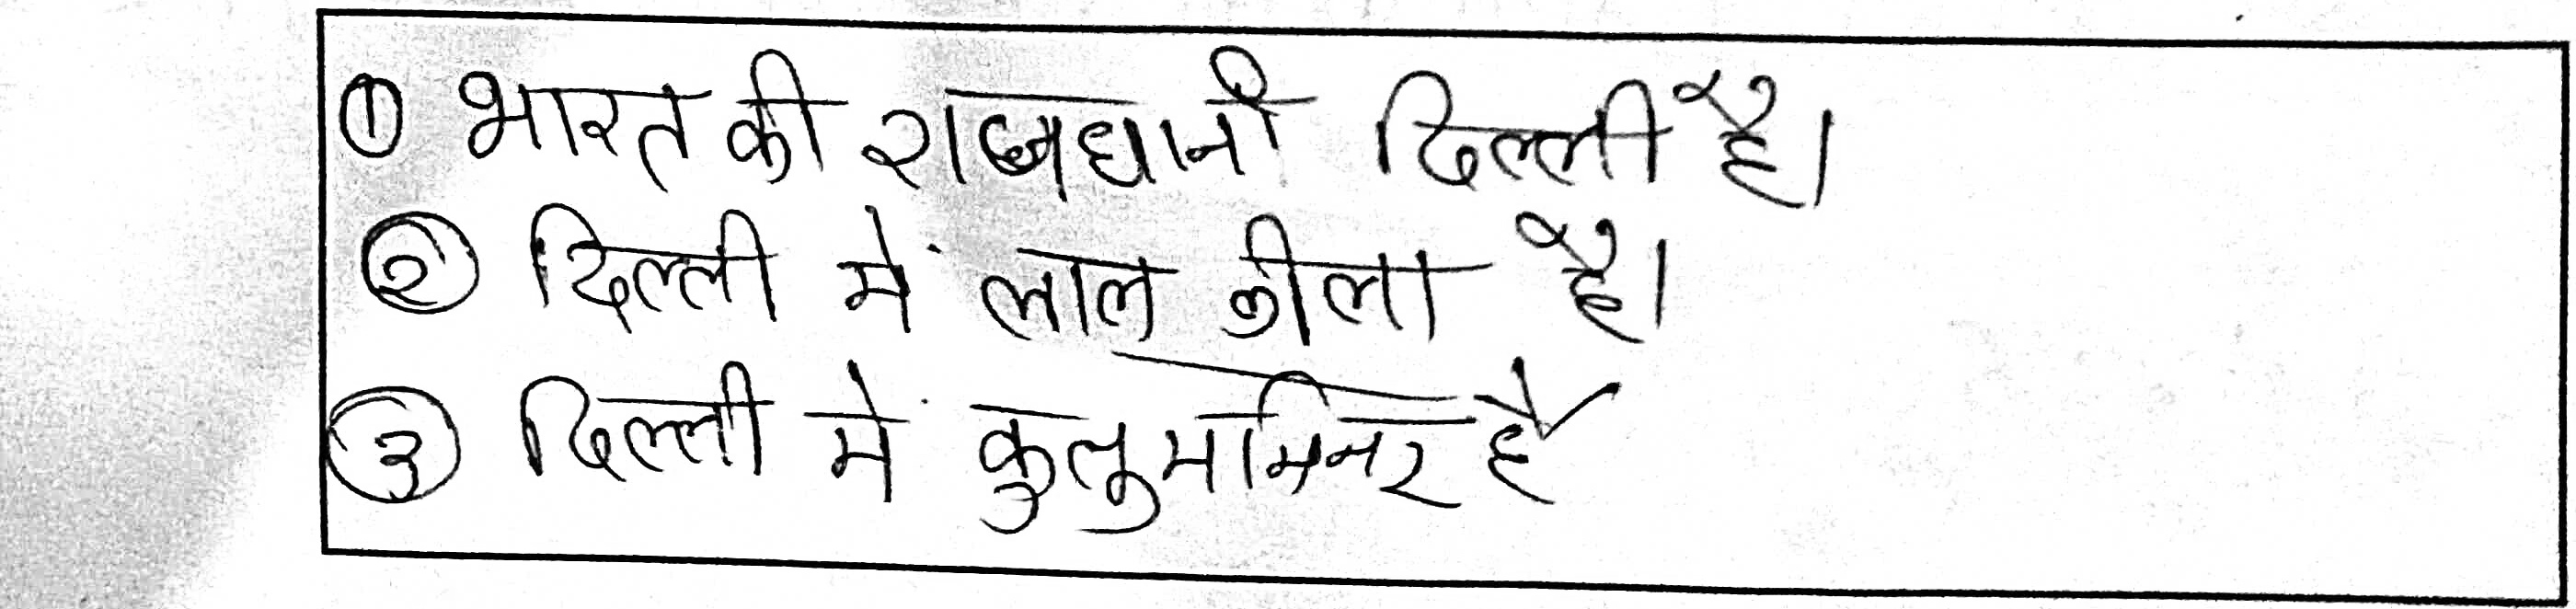 ① भारत की राजधानी दिल्ली है।
② दिल्ली में लाल कीला है।
③ दिल्ली में कुतुमामिनर है